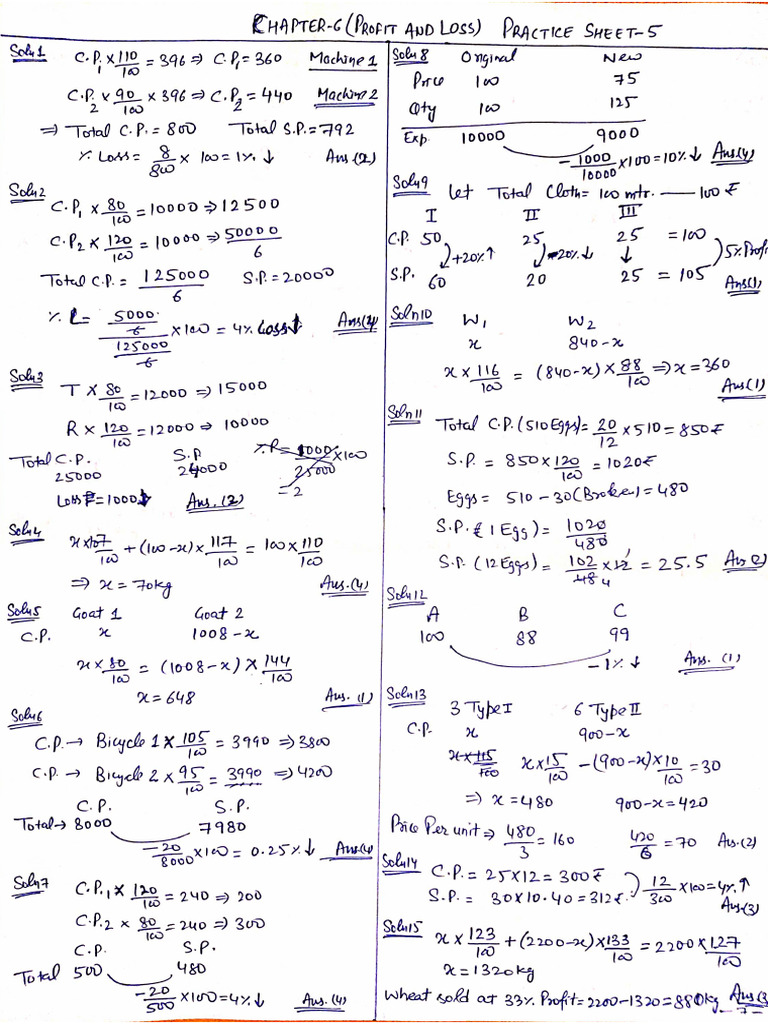 CHAPTER-6 (PROFIT AND LOSS) PRACTICE SHEET-5
Soln1
C.P.₁ × 110/100 = 396 ⇒ C.P.₁ = 360 Machine 1
C.P.₂ × 90/100 × 396 ⇒ C.P.₂ = 440 Machine 2
⇒ Total C.P. = 800 Total S.P. = 792
% Loss = 8/800 × 100 = 1% ↓ Ans (2)
Soln2
C.P.₁ × 80/100 = 10000 ⇒ 12500
C.P.₂ × 120/100 = 10000 ⇒ 50000/6
Total C.P. = 125000/6 S.P. = 20000
% L = (5000/6)/(125000/6) × 100 = 4% Loss ↓
Soln3
T × 80/100 = 12000 ⇒ 15000
R × 120/100 = 12000 ⇒ 10000
Total C.P. S.P.
25000 24000
% P = 1000/25000 × 100
= 2
Loss = 1000 ↓ Ans. (2)
Soln4
x × 107/100 + (100-x) × 117/100 = 100 × 110/100
⇒ x = 70kg Ans. (4)
Soln5 Goat 1 Goat 2
C.P. x 1008-x
x × 80/100 = (1008-x) × 144/100
x = 648 Ans. (1)
Soln6
C.P. → Bicycle 1 × 105/100 = 3990 ⇒ 3800
C.P. → Bicycle 2 × 95/100 = 3990 ⇒ 4200
C.P. S.P.
Total → 8000 7980
-20/8000 × 100 = 0.25% ↓
Soln7
C.P.₁ × 120/100 = 240 ⇒ 200
C.P.₂ × 80/100 = 240 ⇒ 300
C.P. S.P.
Total 500 480
-20/500 × 100 = 4% ↓ Ans. (4)
Soln8 Original New
Price 100 75
Qty 100 125
Exp. 10000 9000
-1000/10000 × 100 = 10% ↓ Ans (4)
Soln9 Let Total Cloth = 100 mtr. — 100 ₹
I II III
C.P. 50 25 25 = 100
+20% ↑ -20% ↓ ↓ 5% Profit
S.P. 60 20 25 = 105 Ans (1)
Soln10 W₁ W₂
x 840-x
x × 116/100 = (840-x) × 88/100 ⇒ x = 360
Ans (1)
Soln11
Total C.P. (510 Eggs) = 20/12 × 510 = 850 ₹
S.P. = 850 × 120/100 = 1020 ₹
Eggs = 510 - 30 (Broken) = 480
S.P. (1 Egg) = 1020/480
S.P. (12 Eggs) = 102/48 4 × 12 1 = 25.5 Ans (2)
Soln12
A B C
100 88 99
-1% ↓ Ans. (1)
Soln13
3 Type I 6 Type II
C.P. x 900-x
x × 115/100 x × 15/100 - (900-x) × 10/100 = 30
⇒ x = 480 900-x = 420
Price Per unit ⇒ 480/3 = 160 420/6 = 70 Ans. (2)
Soln14
C.P. = 25 × 12 = 300 ₹
S.P. = 30 × 10.40 = 312 ₹ 12/300 × 100 = 4% ↑
Ans (3)
Soln15
x × 123/100 + (2200-x) × 133/100 = 2200 × 127/100
x = 1320 kg
Wheat sold at 33% Profit = 2200-1320 = 880 kg Ans (3)